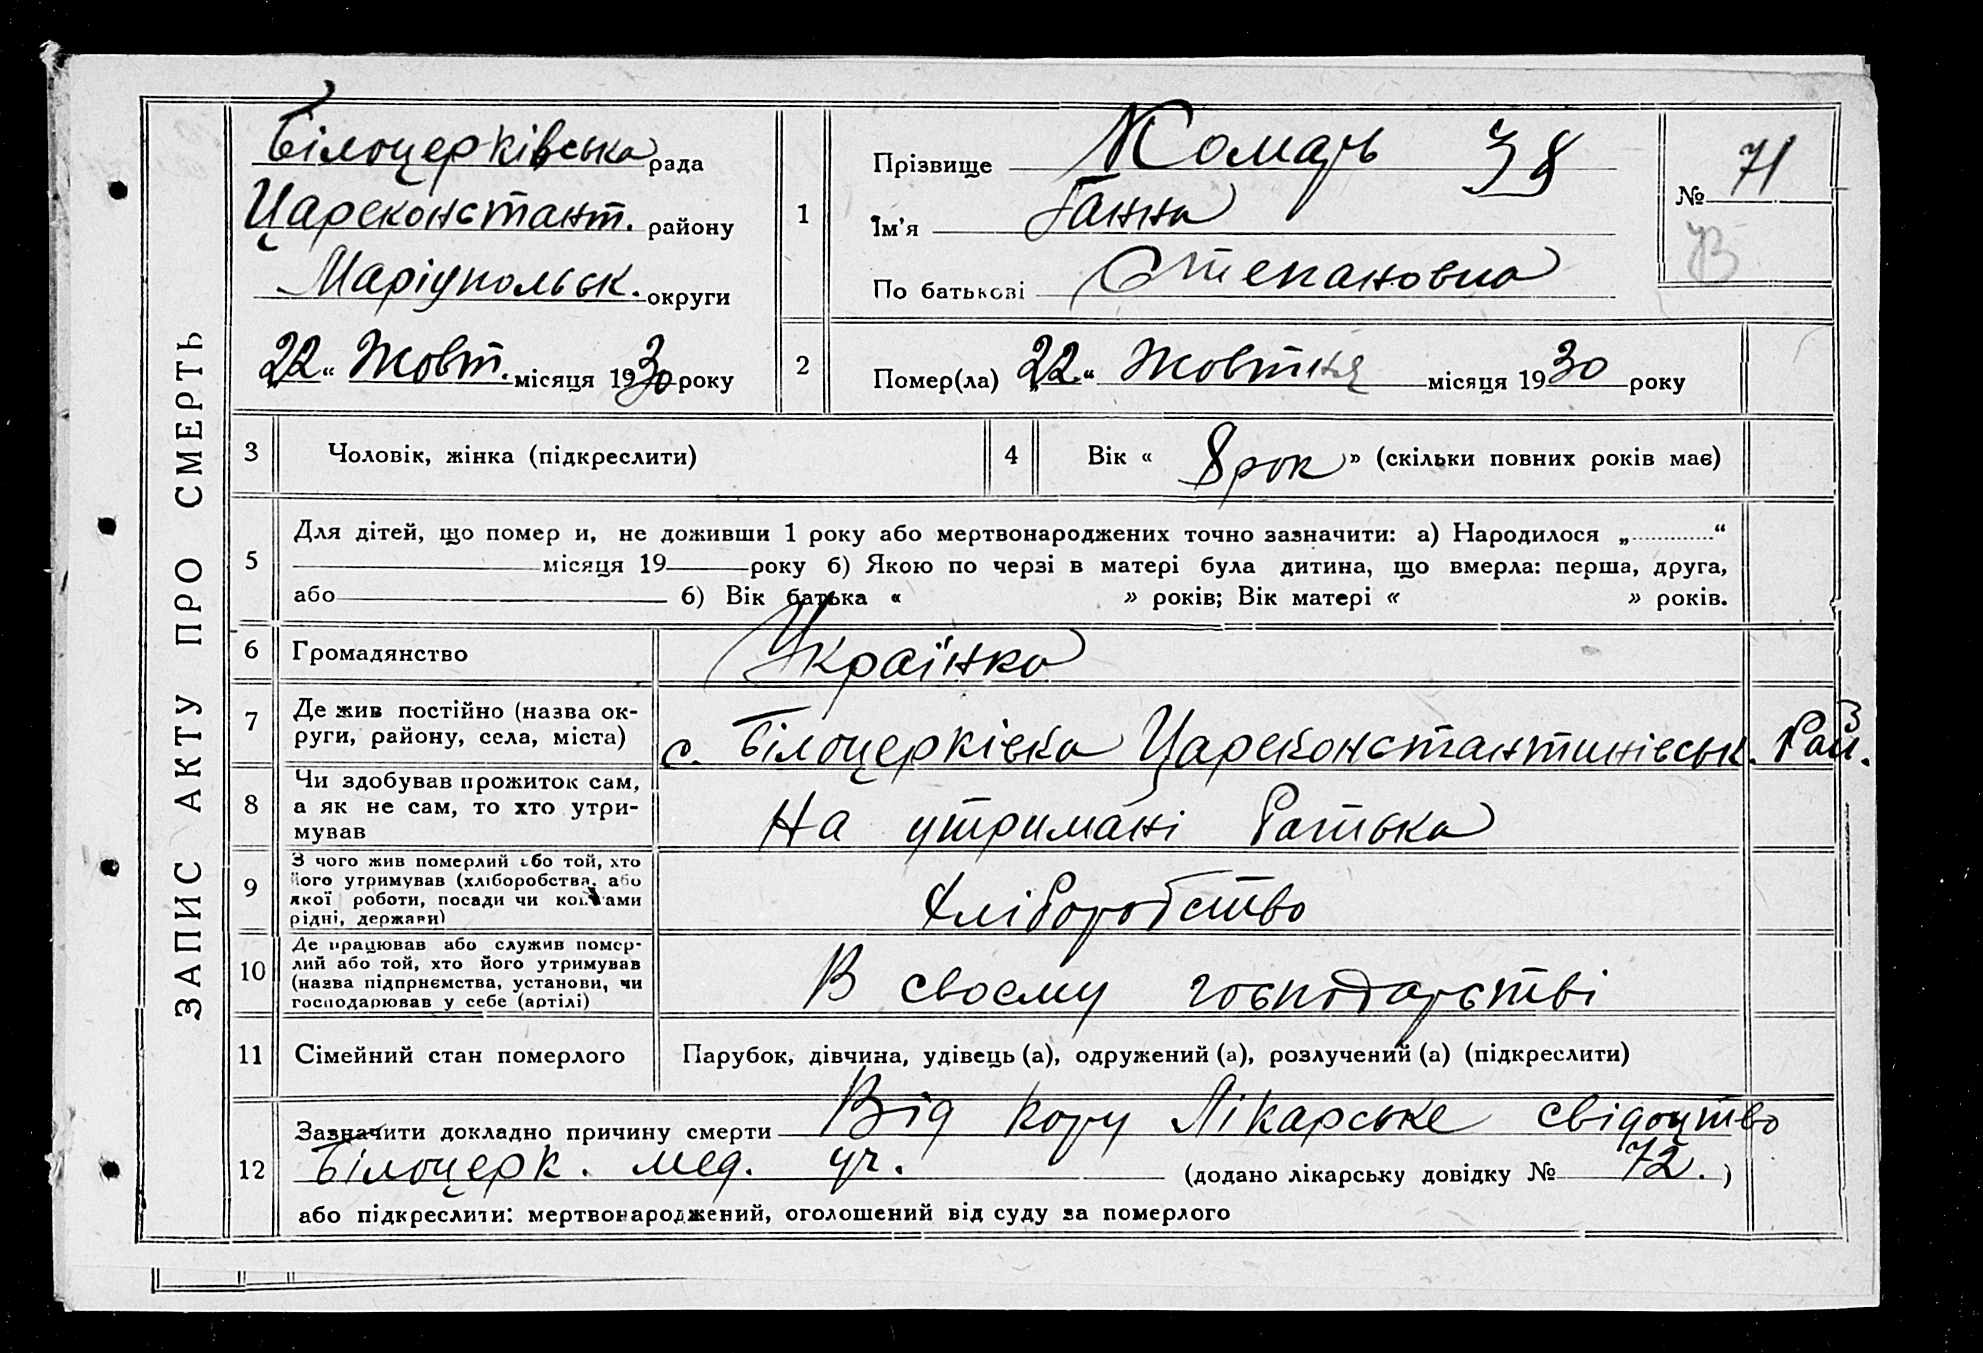 ЗАПИС АКТУ ПРО СМЕРТЬ
Білоцерківська рада
Цареконстант. району
Маріупольськ. округи
22 “ Жовт. місяця 1930 року
1
Прізвище Комарь 38
Ім’я Ганна
По батькові Степановна
№ 71
2
Помер(ла) „22“ Жовтня місяця 1930 року
3
Чоловік, жінка (підкреслити)
4
Вік « 8 рок » (скільки повних років має)
5
Для дітей, що померли, не доживши 1 року або мертвонароджених точно зазначити: а) Народилося „ “
місяця 19 року б) Якою по черзі в матері була дитина, що вмерла: перша, друга,
або б) Вік батька « » років; Вік матері « » років.
6
Громадянство
Українка
7
Де жив постійно (назва ок-
руги, району, села, міста)
с. Білоцерківка Цареконстантинівськ. Рай.
8
Чи здобував прожиток сам,
а як не сам, то хто утри-
мував
На утримані Батька
9
З чого жив померлий або той, хто
його утримував (хліборобства, або
якої роботи, посади чи коштами
рідні, держави)
Хліборобство
10
Де працював або служив помер-
лий або той, хто його утримував
(назва підприємства, установи, чи
господарював у себе (артілі)
В своєму господарстві
11
Сімейний стан померлого
Парубок, дівчина, удівець (а), одружений (а), розлучений (а) (підкреслити)
12
Зазначити докладно причину смерти Від кору Лікарське свідоцтво
Білоцерк. мед. уч. (додано лікарську довідку № 72. )
або підкреслити: мертвонароджений, оголошений від суду за померлого